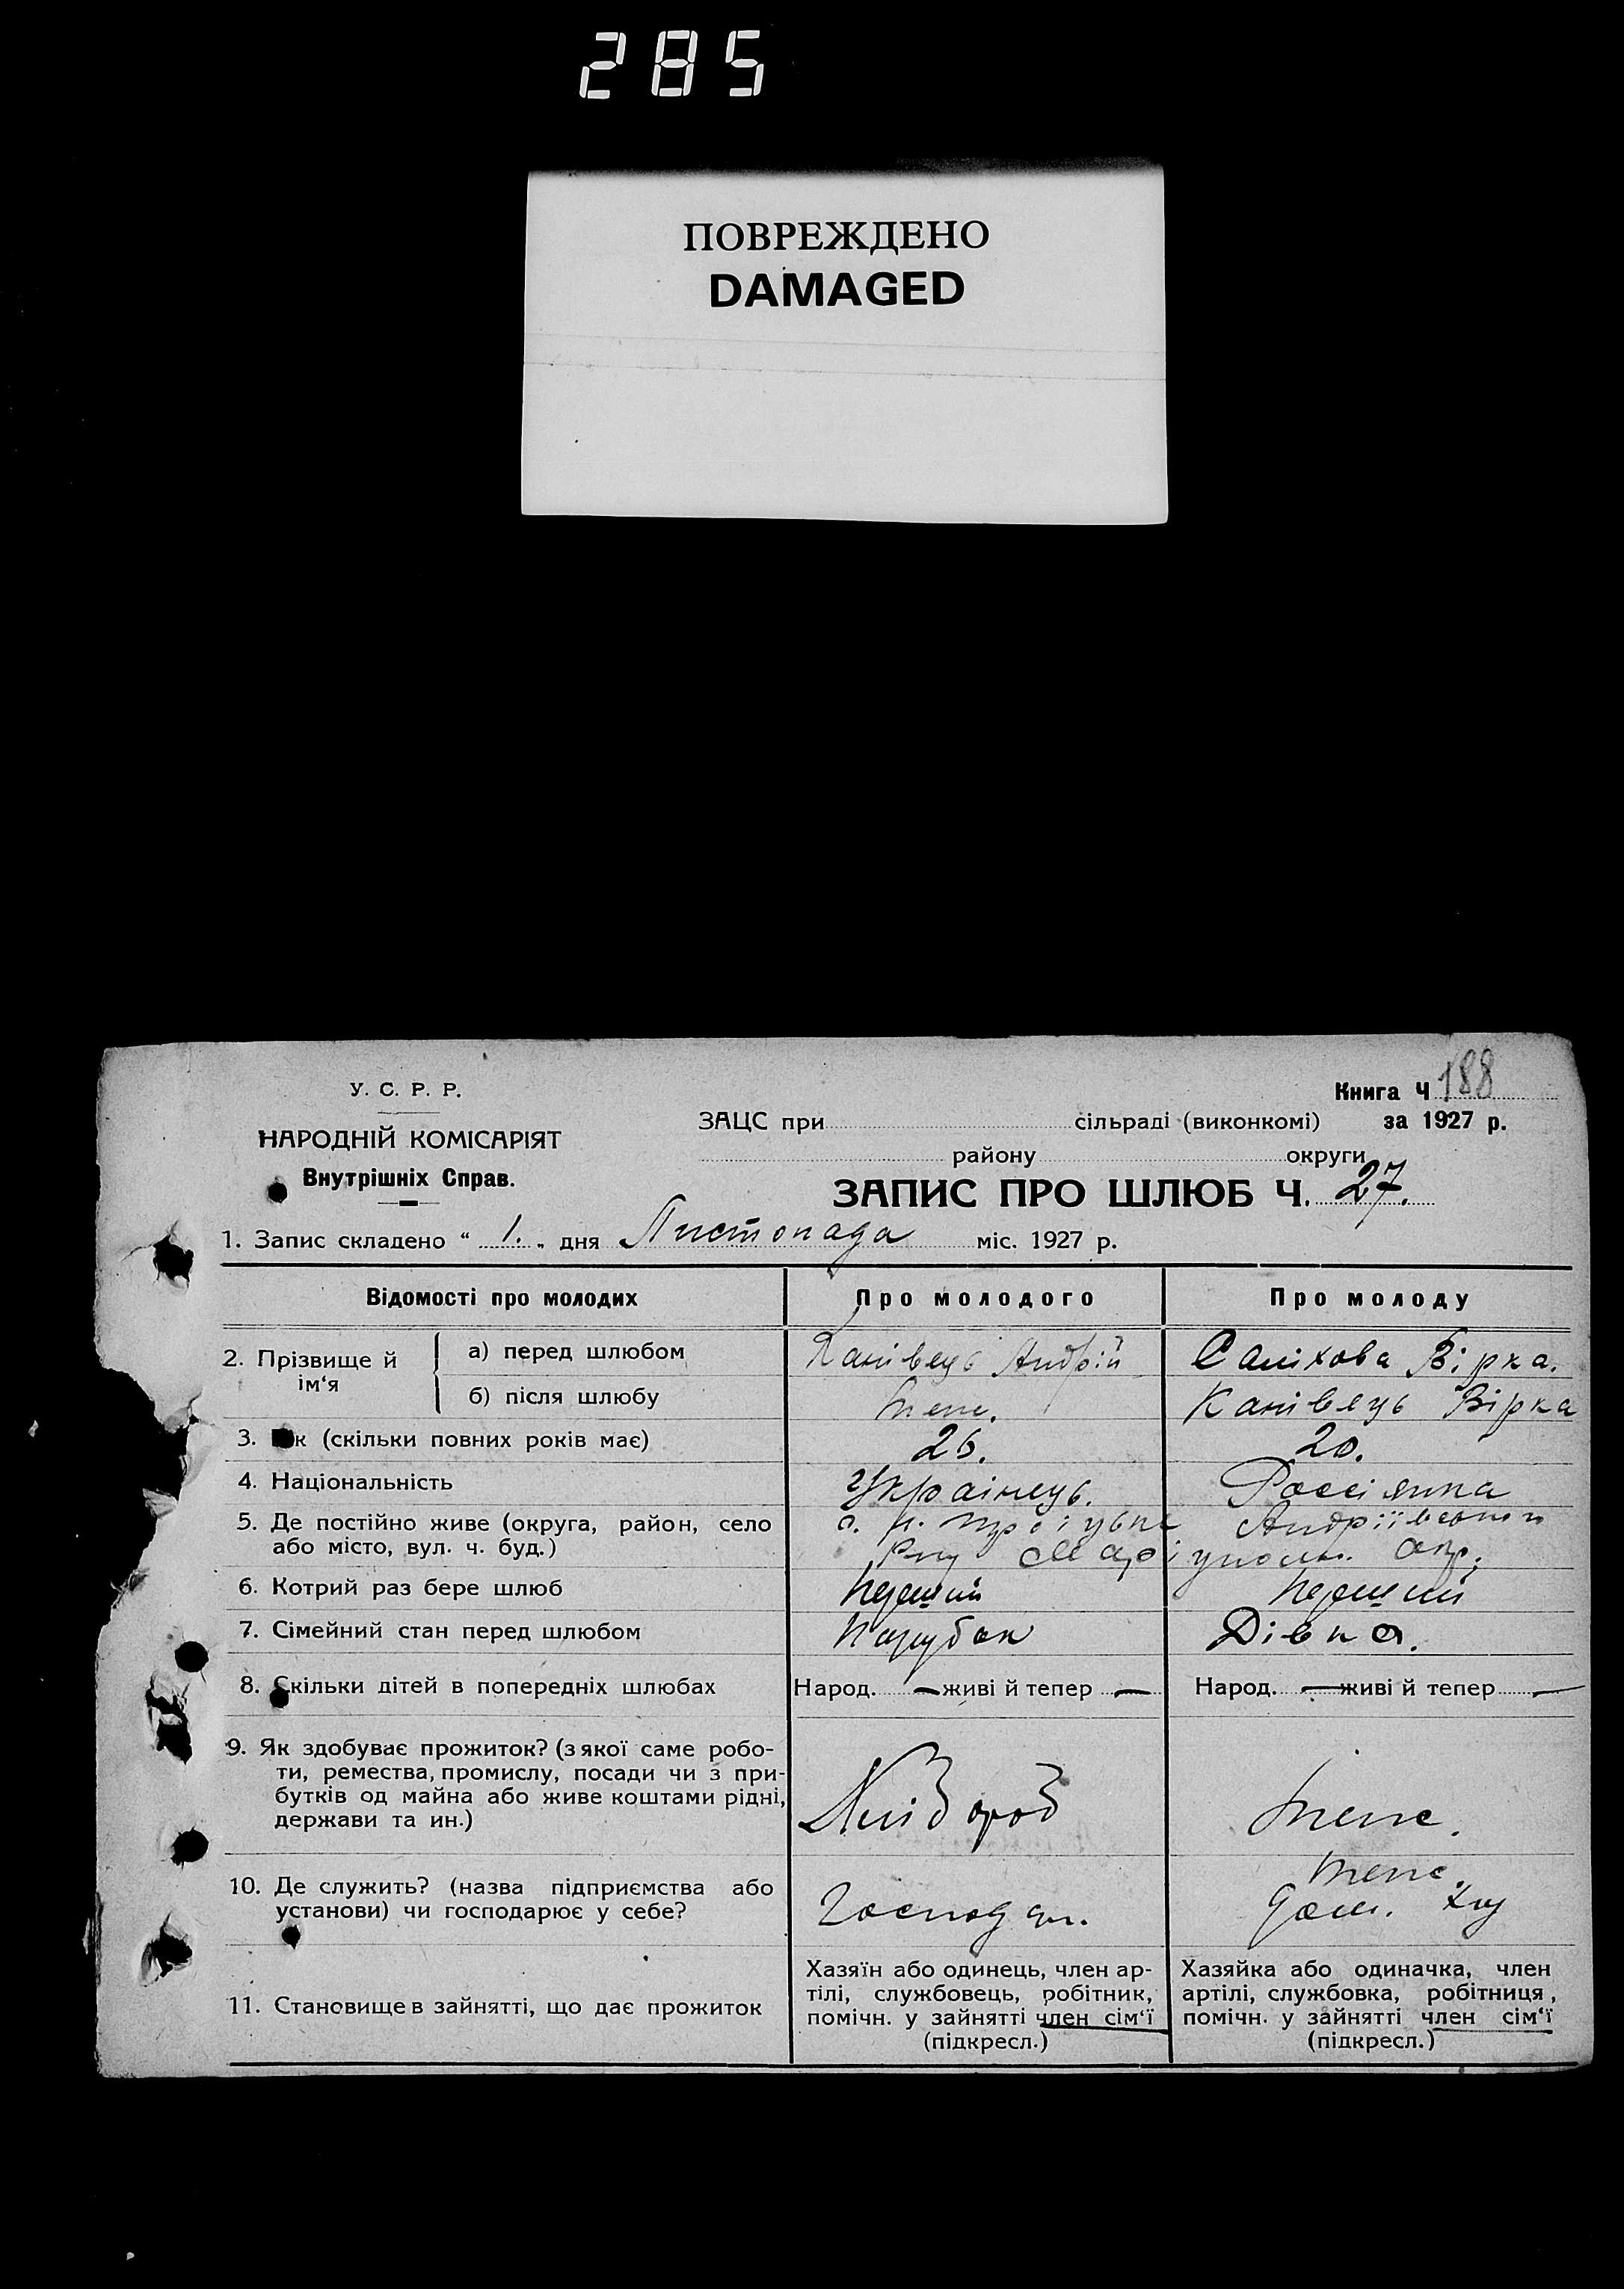 285
ПОВРЕЖДЕНО
DAMAGED
У. С. Р. Р.
НАРОДНІЙ КОМІСАРІЯТ
Внутрішніх Справ.
Книга Ч 188
ЗАЦС при сільраді (виконкомі) за 1927 р.
району округи
ЗАПИС ПРО ШЛЮБ Ч. 27.
1. Запис складено “ 1. „ дня Листопада міс. 1927 р.
Відомості про молодих Про молодого Про молоду
2. Прізвище й ім‘я
а) перед шлюбом Канівець Андрій Саліхова Вірка.
б) після шлюбу Теж. Канівець Вірка
3. к (скільки повних років має) 26. 20.
4. Національність Українець. Россіянка
5. Де постійно живе (округа, район, село Андріївського
або місто, вул. ч. буд.) Р-ну Маріупольськ. окр.
6. Котрий раз бере шлюб Перший Перший
7. Сімейний стан перед шлюбом Парубок Дівка.
8. Скільки дітей в попередніх шлюбах Народ. — живі й тепер — Народ. — живі й тепер —
9. Як здобуває прожиток? (з якої саме робо-
ти, ремества, промислу, посади чи з при-
бутків од майна або живе коштами рідні,
держави та ин.)
Хлібороб Теж.
10. Де служить? (назва підприємства або
установи) чи господарює у себе?
Господар. Теж.
Дом. Хоз
11. Становище в зайнятті, що дає прожиток
Хазяїн або одинець, член ар-
тілі, службовець, робітник,
помічн. у зайнятті член сім‘ї
(підкресл.)
Хазяйка або одиначка, член
артілі, службовка, робітниця,
помічн. у зайнятті член сім‘ї
(підкресл.)